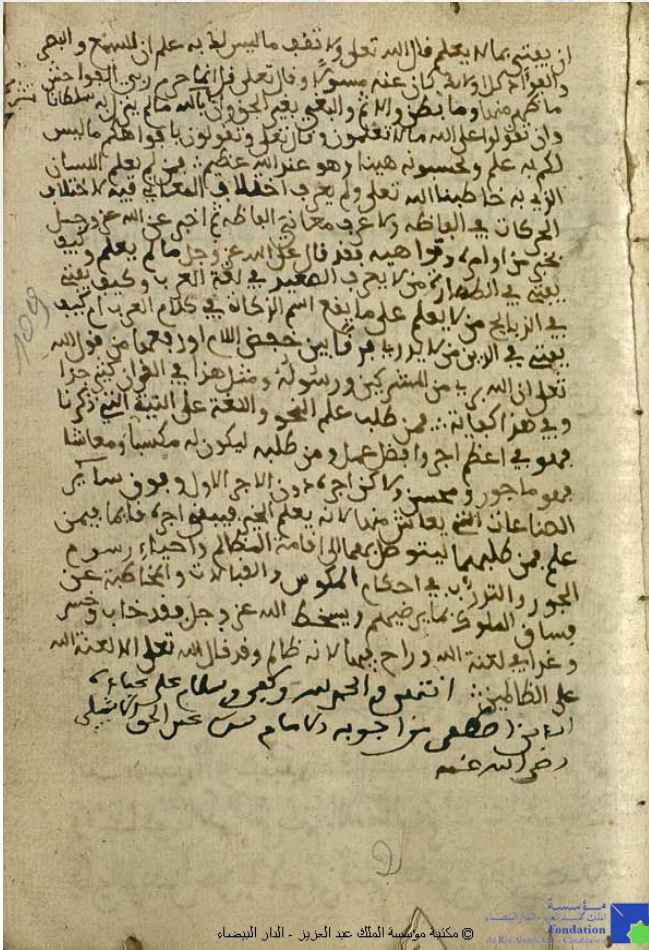 ان يفتي بما لا يعلم قال الله تعلى ولا تقف ما ليس لك به علم ان السمع والبصر
والفؤاد كل اولئك كان عنه مسؤلا وقال تعلى قل انما حرم ربي الفواحش
ما ظهر منها وما بطن والاثم والبغي بغير الحق وان تشركوا بالله ما لم ينزل به سلطانا
وان تقولوا على الله ما لا تعلمون وقال تعلى وتقولون بافواهكم ما ليس
لكم به علم وتحسبونه هينا وهو عند الله عظيم فمن لم يعلم اللسان
الذي به خاطبنا الله تعلى ولم يعرف اختلاف المعاني فيه لاختلاف
الحركات في الفاظه ولا عرف معاني الفاظه ثم اخبر عن الله عز وجل
بخبر من اوامره ونواهيه فقد قال على الله عز وجل ما لم يعلم وكيف
يفتي في الطهارة من لا يعرف الصعيد في لغة العرب وكيف يفتي
في الذبايح من لا يعلم على ما يقع اسم الزكاة في كلام العرب ام كيف
يفتي في الدين من لا يدري فرقا بين خفض اللام او رفعها من قول الله
تعلى ان الله بريء من المشركين ورسوله ومثل هذا في القران كثير جدا
وفي هذا كفاية فمن طلب علم النحو واللغة على النية التي ذكرنا
فهو في اعظم اجر وافضل عمل ومن طلبه ليكون له مكسبا ومعاشا
فهو ماجور ومحسن ولاكن اجره دون الاجر الاول وفوق ساير
الصناعات التي يعاش منها لانه يعلم الخير فيبقى اجره فانما فيمن
علم فمن طلبهما ليتوصل بهما الى اقامة المظالم واحياء رسوم
الجور والتدرب في احكام المكوس والقبالات والمخاطبة عن
فساق الملوك بما يرضيهم ويسخط الله عز وجل فقد خاب وخسر
وغدا في لعنة الله وراح فيها لانه ظالم وقد قال الله تعلى الا لعنة الله
على الظالمين انتهى والحمد لله وكفى وسلام على عباده
الذين اصطفى من اجوبة الامام عبد الحق الاشبيلي
رضي الله عنه
109
مؤسسة
الملك عبد العزيز - الدار البيضاء
Fondation
du Roi Abdul-Aziz - Casablanca
© مكتبة مؤسسة الملك عبد العزيز - الدار البيضاء